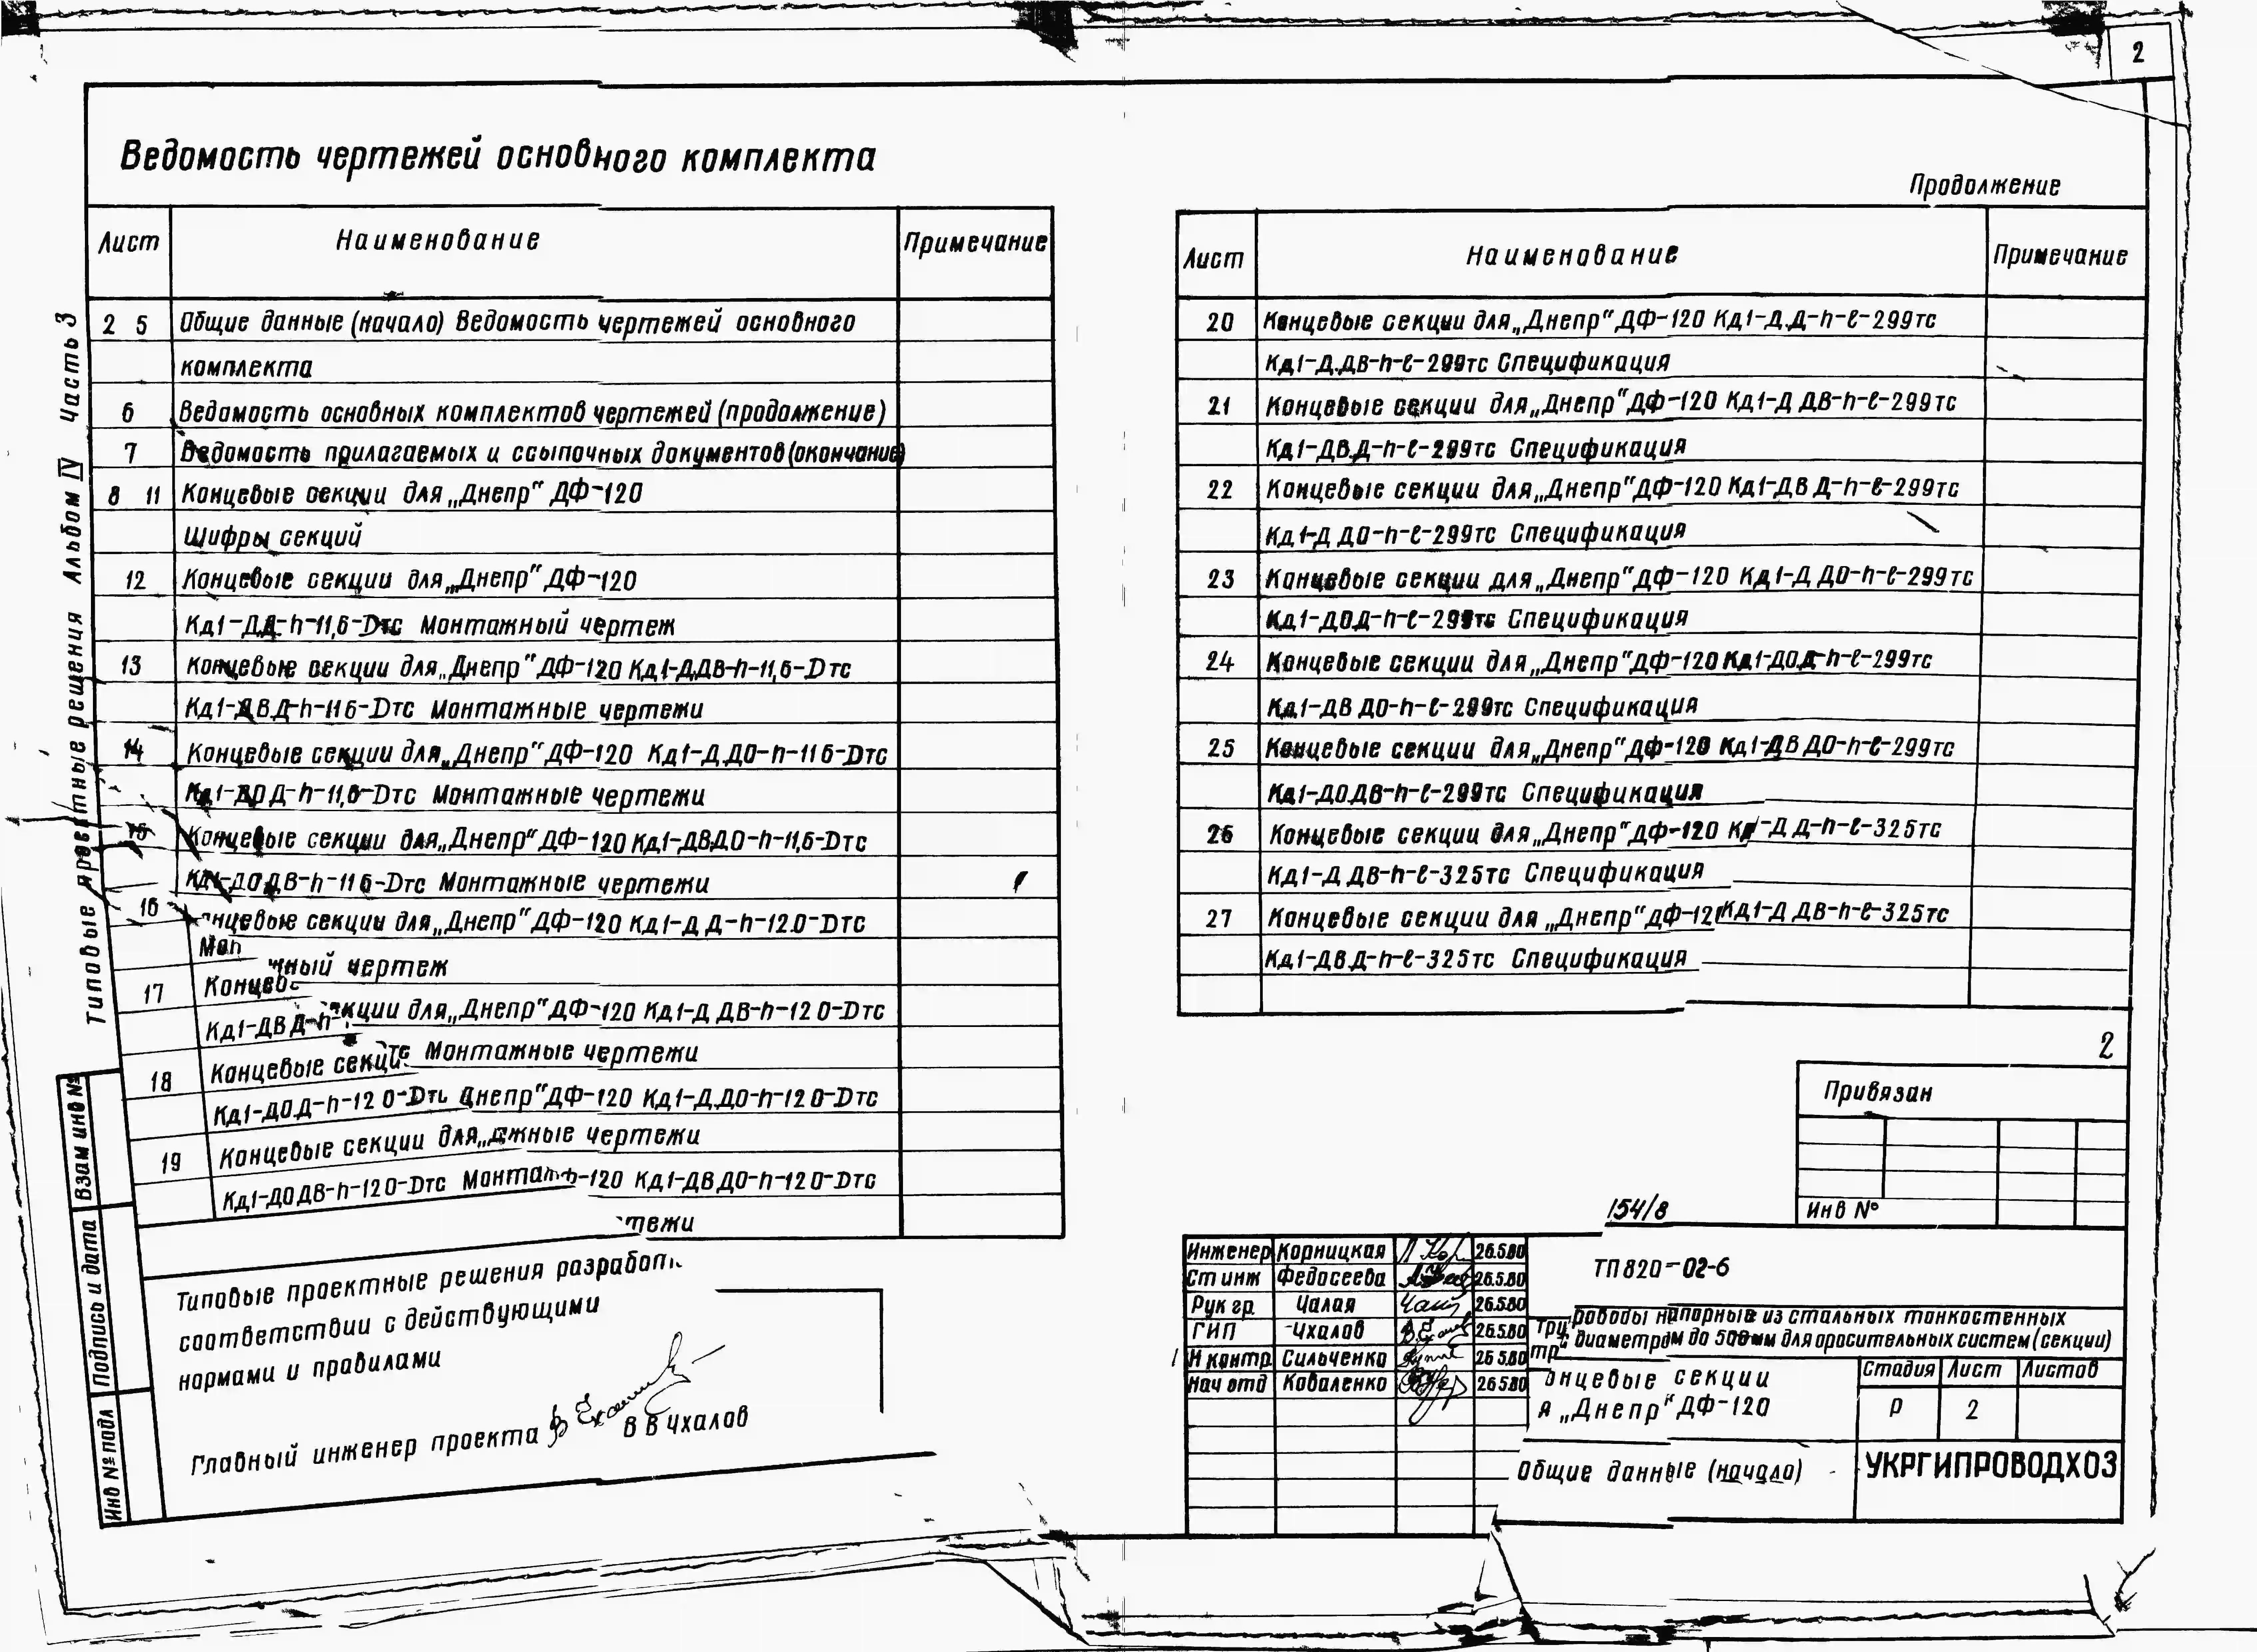 2
Ведомость чертежей основного комплекта
Лист Наименование Примечание
2 5 Общие данные (начало) Ведомость чертежей основного
комплекта
6 Ведомость основных комплектов чертежей (продолжение)
7 Ведомость прилагаемых и ссылочных документов (окончание)
8 11 Концевые секции для „Днепр" ДФ-120
Шифры секций
12 Концевые секции для „Днепр" ДФ-120
Кд1-Д.Д-h-11,6-Dтс Монтажный чертеж
13 Концевые секции для „Днепр" ДФ-120 Кд1-Д.ДВ-h-11,6-Dтс
Кд1-ДВ.Д-h-11 6-Dтс Монтажные чертежи
14 Концевые секции для „Днепр" ДФ-120 Кд1-Д.ДО-h-11 6-Dтс
Кд1-ДО Д-h-11,6-Dтс Монтажные чертежи
15 Концевые секции для „Днепр" ДФ-120 Кд1-ДВ.ДО-h-11,6-Dтс
Кд1-ДО ДВ-h-11 6-Dтс Монтажные чертежи
16 нцевые секции для „Днепр" ДФ-120 Кд1-Д Д-h-12.0-Dтс
Мон
жный чертеж
17 Концев
кции для „Днепр" ДФ-120 Кд1-Д ДВ-h-12 0-Dтс
Кд1-ДВ Д-h-
тс Монтажные чертежи
18 Концевые секци
Днепр" ДФ-120 Кд1-Д.ДО-h-12 0-Dтс
Кд1-ДО.Д-h-12 0-Dтс
жные чертежи
19 Концевые секции для „Д
-120 Кд1-ДВ ДО-h-12 0-Dтс
Кд1-ДО ДВ-h-12 0-Dтс Монта
тежи
Типовые проектные решения разрабо
соответствии с действующими
нормами и правилами
Главный инженер проекта В В Чхалов
Типовые проектные решения Альбом IV Часть 3
Взам инв №
Подпись и дата
Инв № подл
Продолжение
Лист Наименование Примечание
20 Концевые секции для „Днепр" ДФ-120 Кд1-Д.Д-h-ℓ-299тс
Кд1-Д.ДВ-h-ℓ-299тс Спецификация
21 Концевые секции для „Днепр" ДФ-120 Кд1-Д ДВ-h-ℓ-299тс
Кд1-ДВ.Д-h-ℓ-299тс Спецификация
22 Концевые секции для „Днепр" ДФ-120 Кд1-ДВ Д-h-ℓ-299тс
Кд1-Д ДО-h-ℓ-299тс Спецификация
23 Концевые секции для „Днепр" ДФ-120 Кд1-Д ДО-h-ℓ-299тс
Кд1-ДО.Д-h-ℓ-299тс Спецификация
24 Концевые секции для „Днепр" ДФ-120 Кд1-ДО.Д-h-ℓ-299тс
Кд1-ДВ ДО-h-ℓ-299тс Спецификация
25 Концевые секции для „Днепр" ДФ-120 Кд1-ДВ ДО-h-ℓ-299тс
Кд1-ДО.ДВ-h-ℓ-299тс Спецификация
26 Концевые секции для „Днепр" ДФ-120 Кд1-Д Д-h-ℓ-325тс
Кд1-Д ДВ-h-ℓ-325тс Спецификация
27 Концевые секции для „Днепр" ДФ-12 Кд1-Д ДВ-h-ℓ-325тс
Кд1-ДВ.Д-h-ℓ-325тс Спецификация
2
Привязан
Инв №
154/8
Инженер Корницкая 26.5.80
Ст инж Федосеева 26.5.80
Рук гр Чалая 26.5.80
ГИП Чхалов 26.5.80
Н контр Сильченко 26 5.80
Нач отд Коваленко 26 5.80
ТП 820-02-6
Тру роводы напорные из стальных тонкостенных
тр диаметром до 500мм для оросительных систем (секции)
онцевые секции
я „Днепр" ДФ-120
Стадия Лист Листов
Р 2
Общие данные (начало)
УКРГИПРОВОДХОЗ